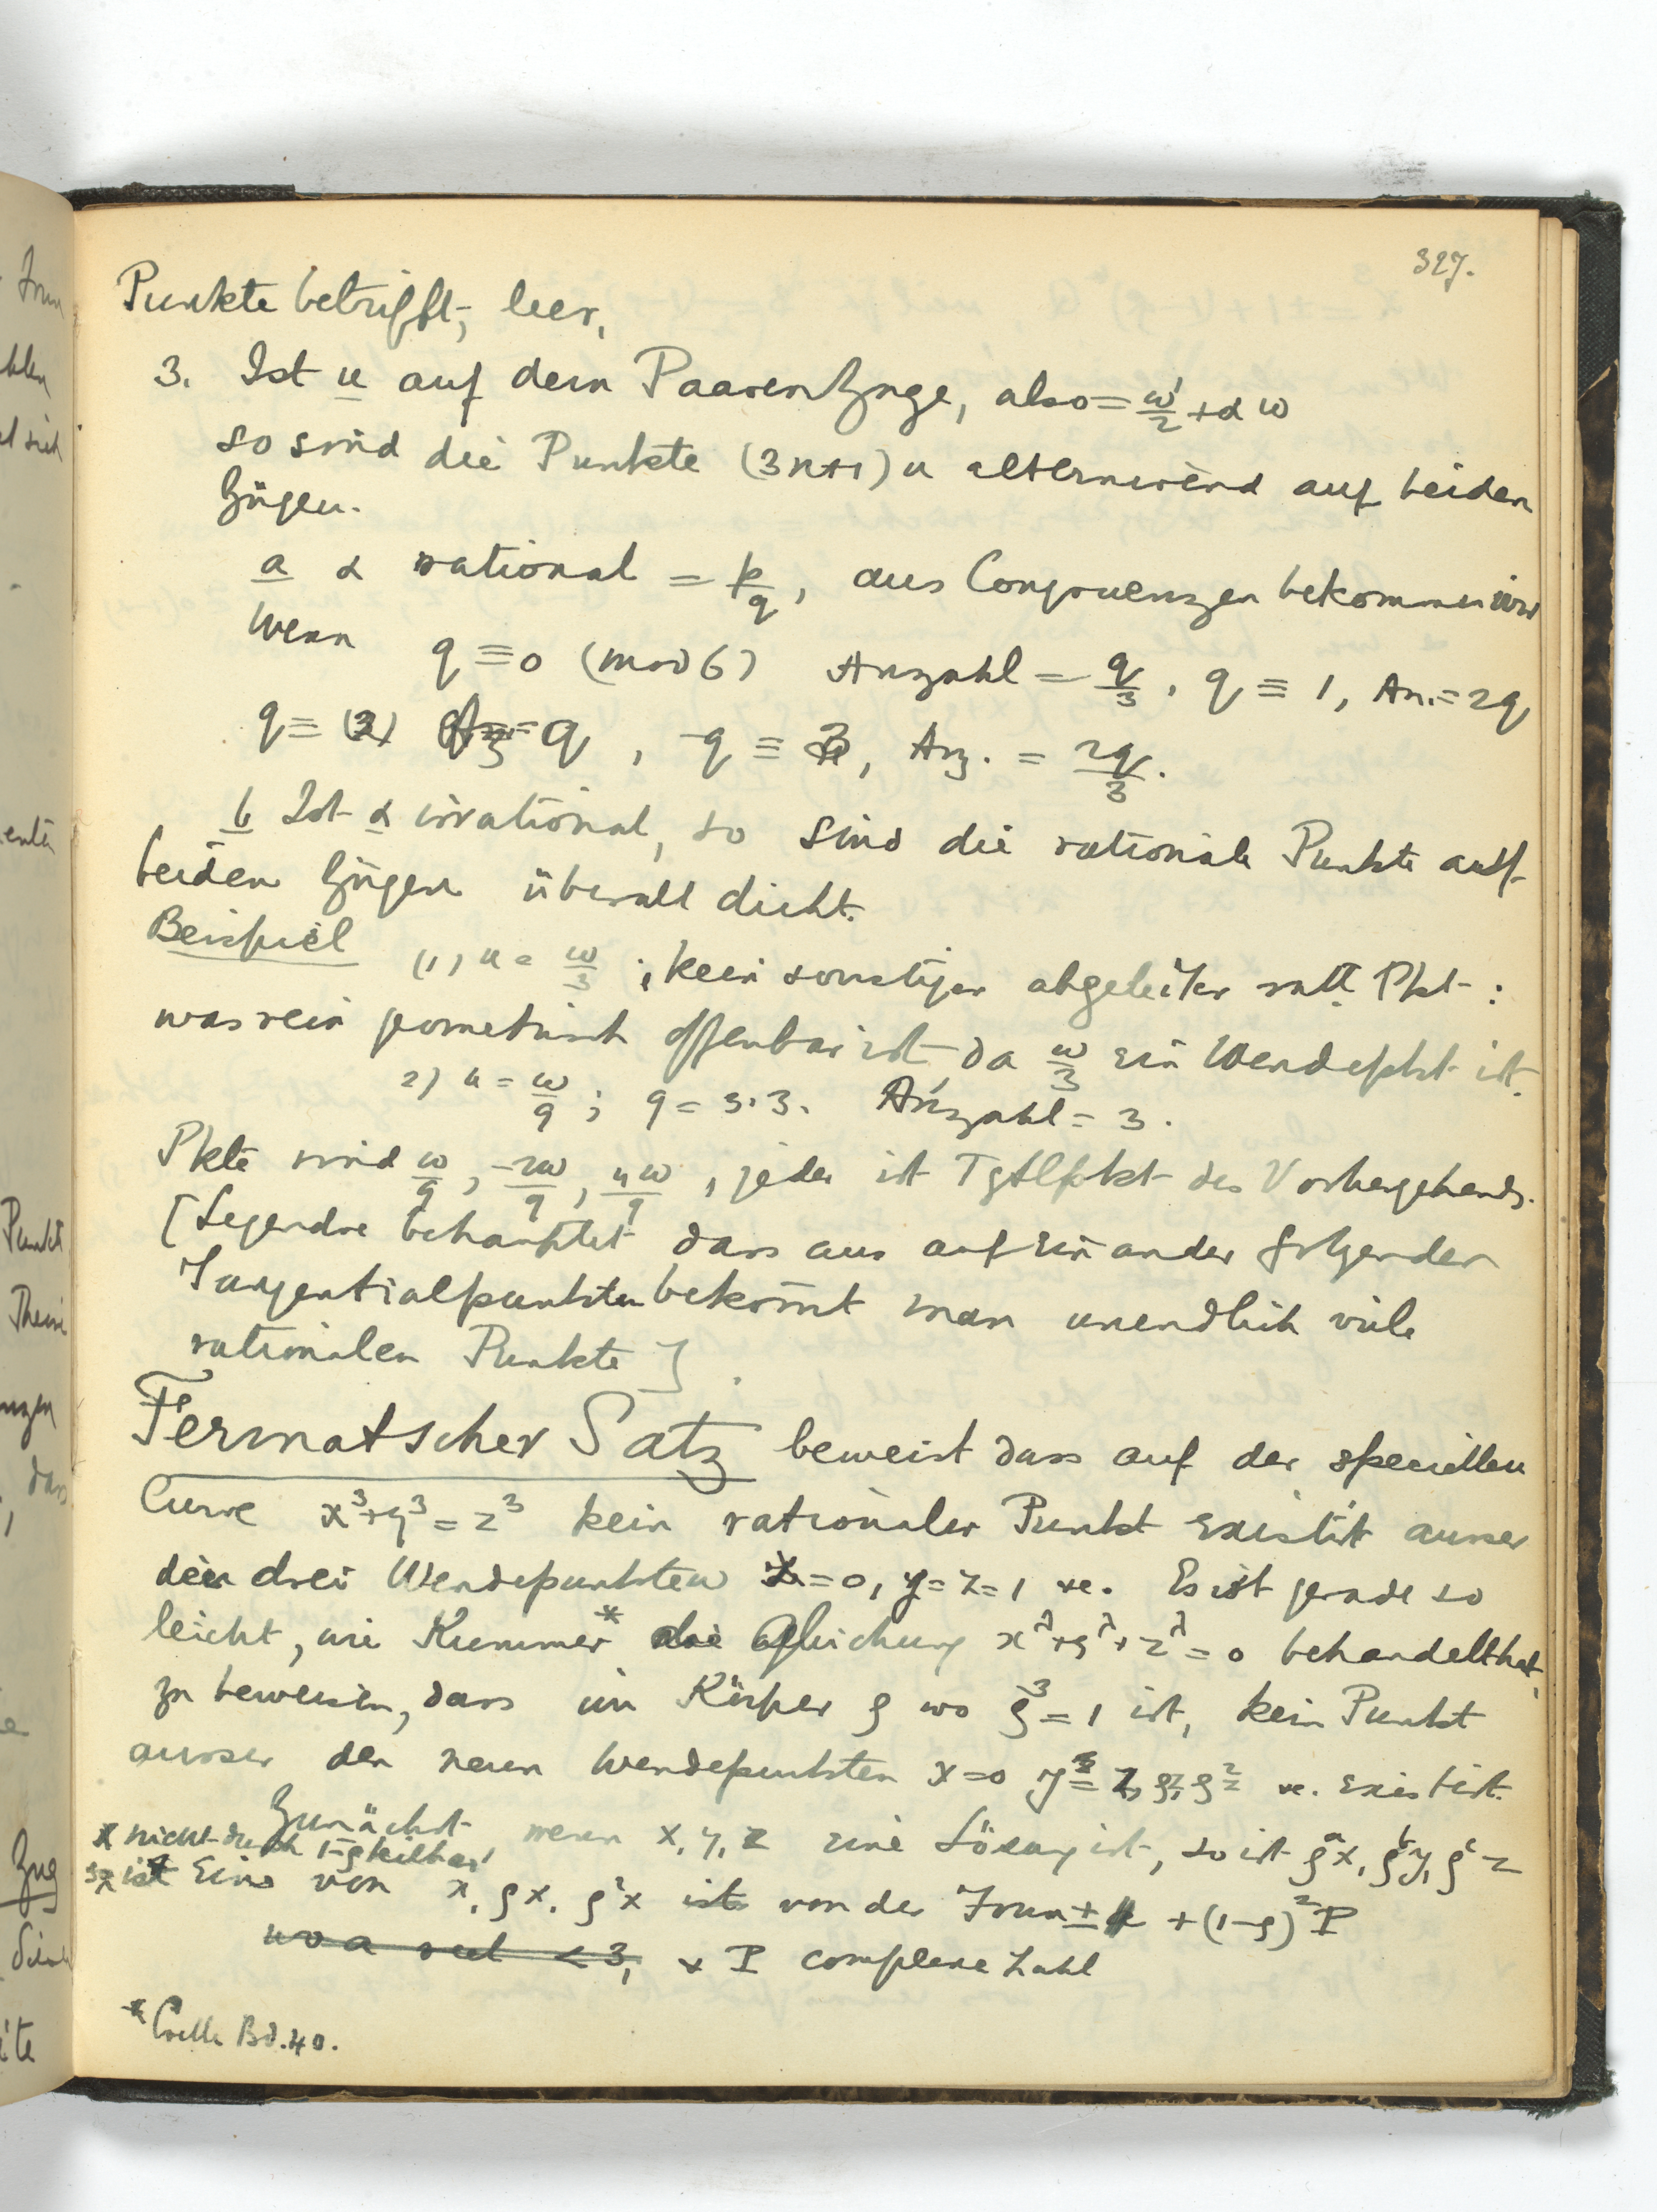 327.
Punkte betrifft, leer.
3. Ist u auf dem Paaren Zuge, also = ω'/2 + α ω
so sind die Punkte (3n+1) u alternirend auf beiden
Zügen.
a α rational = p/q, aus Congruenzen bekommen wir
wenn q ≡ 0 (mod 6) Anzahl = q/3, q ≡ 1, An. = 2q
q ≡ (2) q, q ≡ 3, Anz. = 2q/3.
b Ist α irrational, so sind die rationale Punkte auf
beiden Zügen überall dicht.
Beispiel (1) u = ω/3; kein sonstiger abgeleiter ratl. Pkt:
was rein geometrisch offenbar ist da ω/3 ein Wendepkt ist.
2) u = ω/9; 9 = 3.3. Anzahl = 3.
Pkte sind ω/9, -2ω/9, 4ω/9, jeder ist Tgtlpkt des Vorhergehends.
[Legendre behauptet dass aus auf einander folgenden
Tangentialpunkten bekomt man unendlich viele
rationalen Punkte].
Fermatscher Satz beweist dass auf der speciellen
Curve x³+y³=z³ kein rationaler Punkt existirt ausser
den drei Wendepunkten x=0, y=z=1 etc. Es ist gerade so
leicht, wie Kummer* die Gleichung x^λ+y^λ+z^λ=0 behandelt hat,
zu beweisen, dass im Körper ρ wo ρ³=1 ist, kein Punkt
ausser den neun Wendepunkten x=0 y = z, ρz, ρ²z etc. existirt.
Zunächst wenn x, y, z eine Lösung ist, so ist ρᵃx, ρᵇy, ρᶜz
x nicht durch 1-ρ teilbar,
so ist Eins von x, ρx, ρ²x ist von der Form ±1 +(1-ρ)²P
wo a <3, & P complexe Zahl
* Crelle Bd. 40.